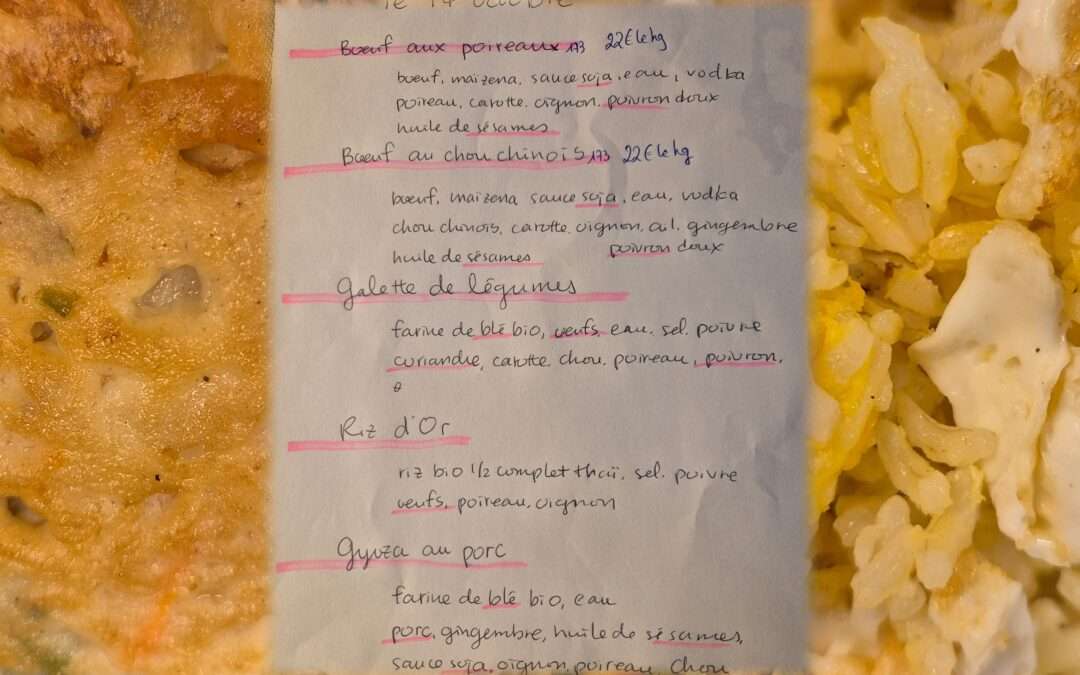 le 14 octobre
Bœuf aux poireaux 173 22€ le kg
bœuf, maizena, sauce soja, eau, vodka
poireau, carotte, oignon, poivron doux
huile de sésames
Bœuf au chou chinois 173 22€ le kg
bœuf, maizena sauce soja, eau, vodka
chou chinois, carotte, oignon, ail, gingembre
huile de sésames poivron doux
Galette de légumes
farine de blé bio, œufs, eau, sel, poivre
coriandre, carotte, chou, poireau, poivron,
Riz d'Or
riz bio 1/2 complet thaï, sel, poivre
œufs, poireau, oignon
Gyoza au porc
farine de blé bio, eau
porc, gingembre, huile de sésames,
sauce soja, oignon, poireau, chou